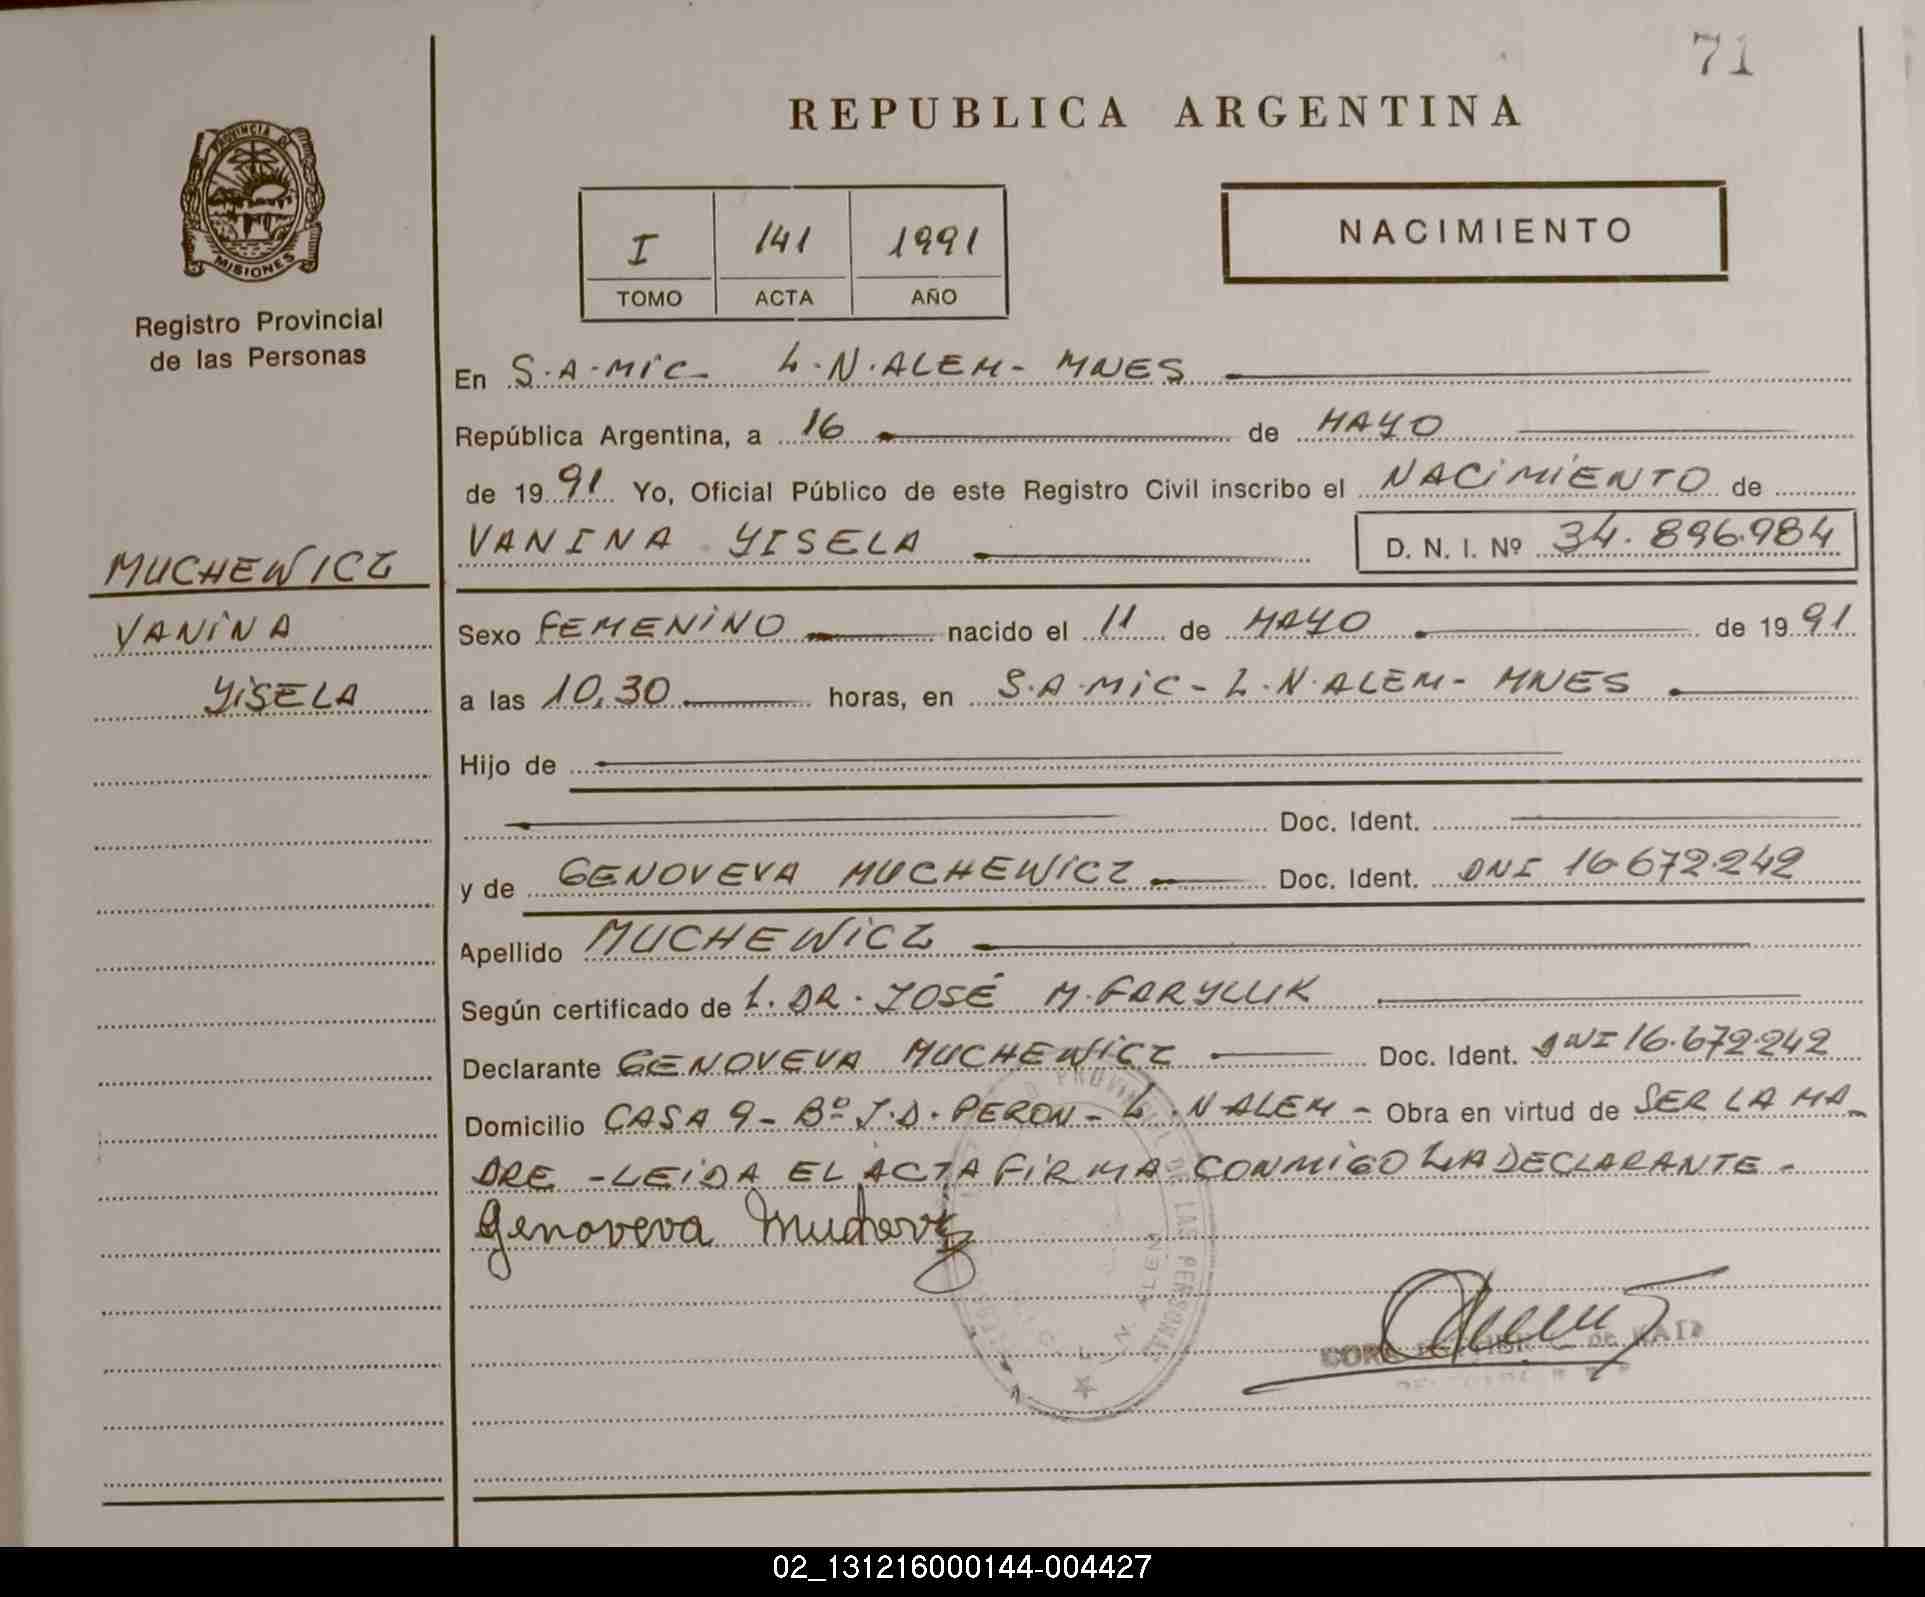 71
REPUBLICA ARGENTINA
PROVINCIA DE
MISIONES
Registro Provincial
de las Personas
I 141 1991
TOMO ACTA AÑO
NACIMIENTO
En S.A.MIC- L.N.ALEM- MNES
República Argentina, a 16 de MAYO
de 1991 Yo, Oficial Público de este Registro Civil inscribo el NACIMIENTO de
VANINA YISELA D. N. I. Nº 34.896.984
MUCHEWICZ
VANINA
YISELA
Sexo FEMENINO nacido el 11 de MAYO de 1991
a las 10,30 horas, en S.A.MIC- L.N.ALEM- MNES
Hijo de
Doc. Ident.
y de GENOVEVA MUCHEWICZ Doc. Ident. DNI 16.672.242
Apellido MUCHEWICZ
Según certificado de L. DR. JOSÉ M.
Declarante GENOVEVA MUCHEWICZ Doc. Ident. DNI 16.672.242
Domicilio CASA 9- Bº J.D. PERON- L.N.ALEM - Obra en virtud de SER LA MA-
DRE -LEIDA EL ACTA FIRMA CONMIGO LA DECLARANTE-
Genoveva
DE LAS PERSONAS
02_131216000144-004427